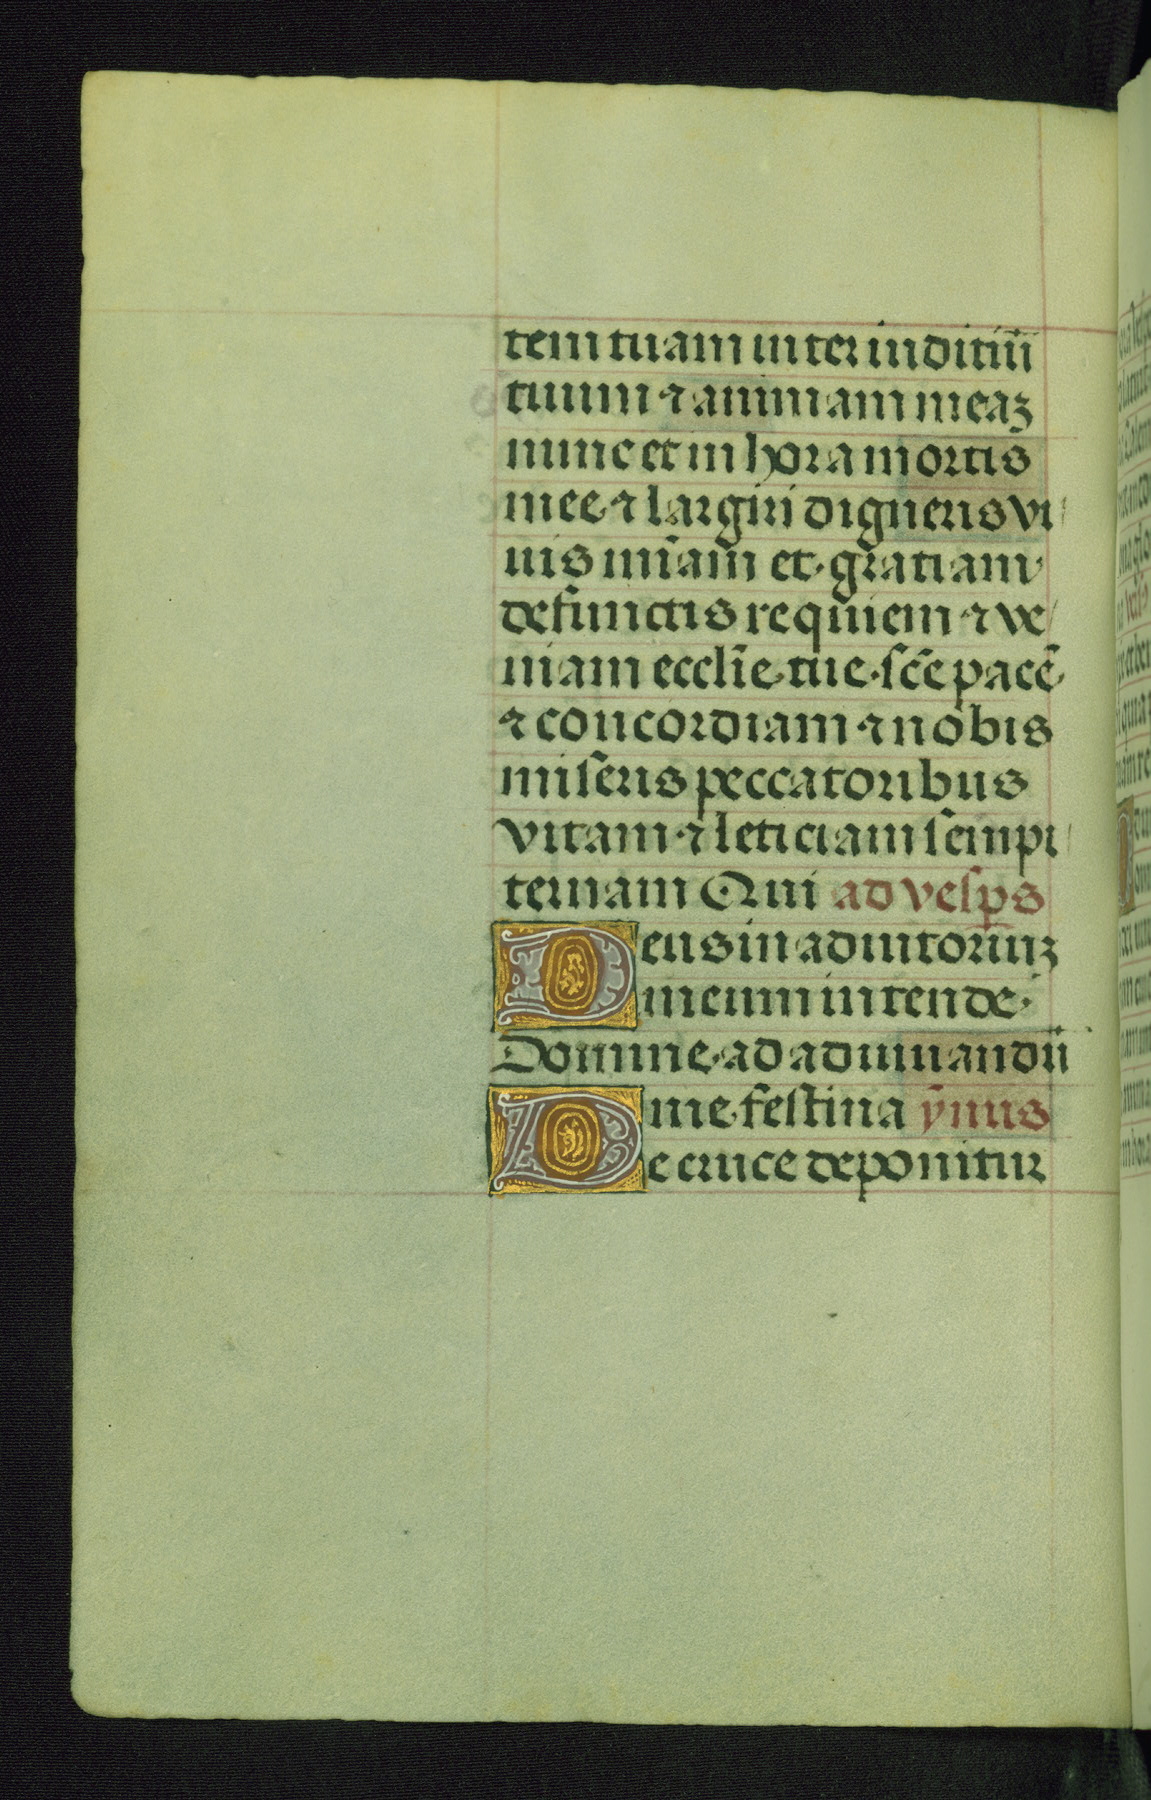 tem tuam inter iuditiū
tuum ⁊ animam meaʒ
nunc et in hora mortis
mee ⁊ largiri digneris vi
uis mīam et grātiam
defunctis requiem ⁊ ve
niam eccl̄ie tue sc̄e pacē
⁊ concordiam ⁊ nobis
miseris peccatoribus
vitam ⁊ leticiam sempi
ternam Qui ad vesꝑs
Deus in adiutoriuʒ
meum intende
Domine ad adiuuandū
me festina ȳnus
De cruce deponitur